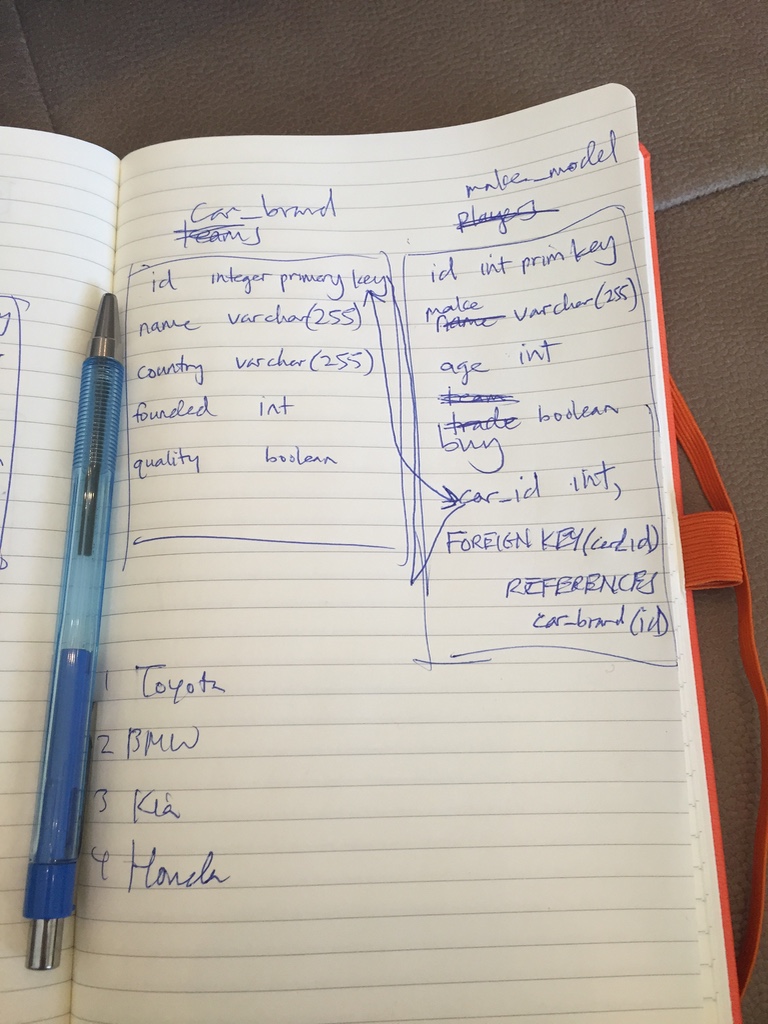 car_brand
teams
id integer primary key
name varchar(255)
country varchar(255)
founded int
quality boolean
make_model
players
id int prim key
make
name varchar(255)
age int
team
trade boolean
buy
car_id int,
FOREIGN KEY(car_id)
REFERENCES
car_brand(id)
1 Toyota
2 BMW
3 Kia
4 Honda